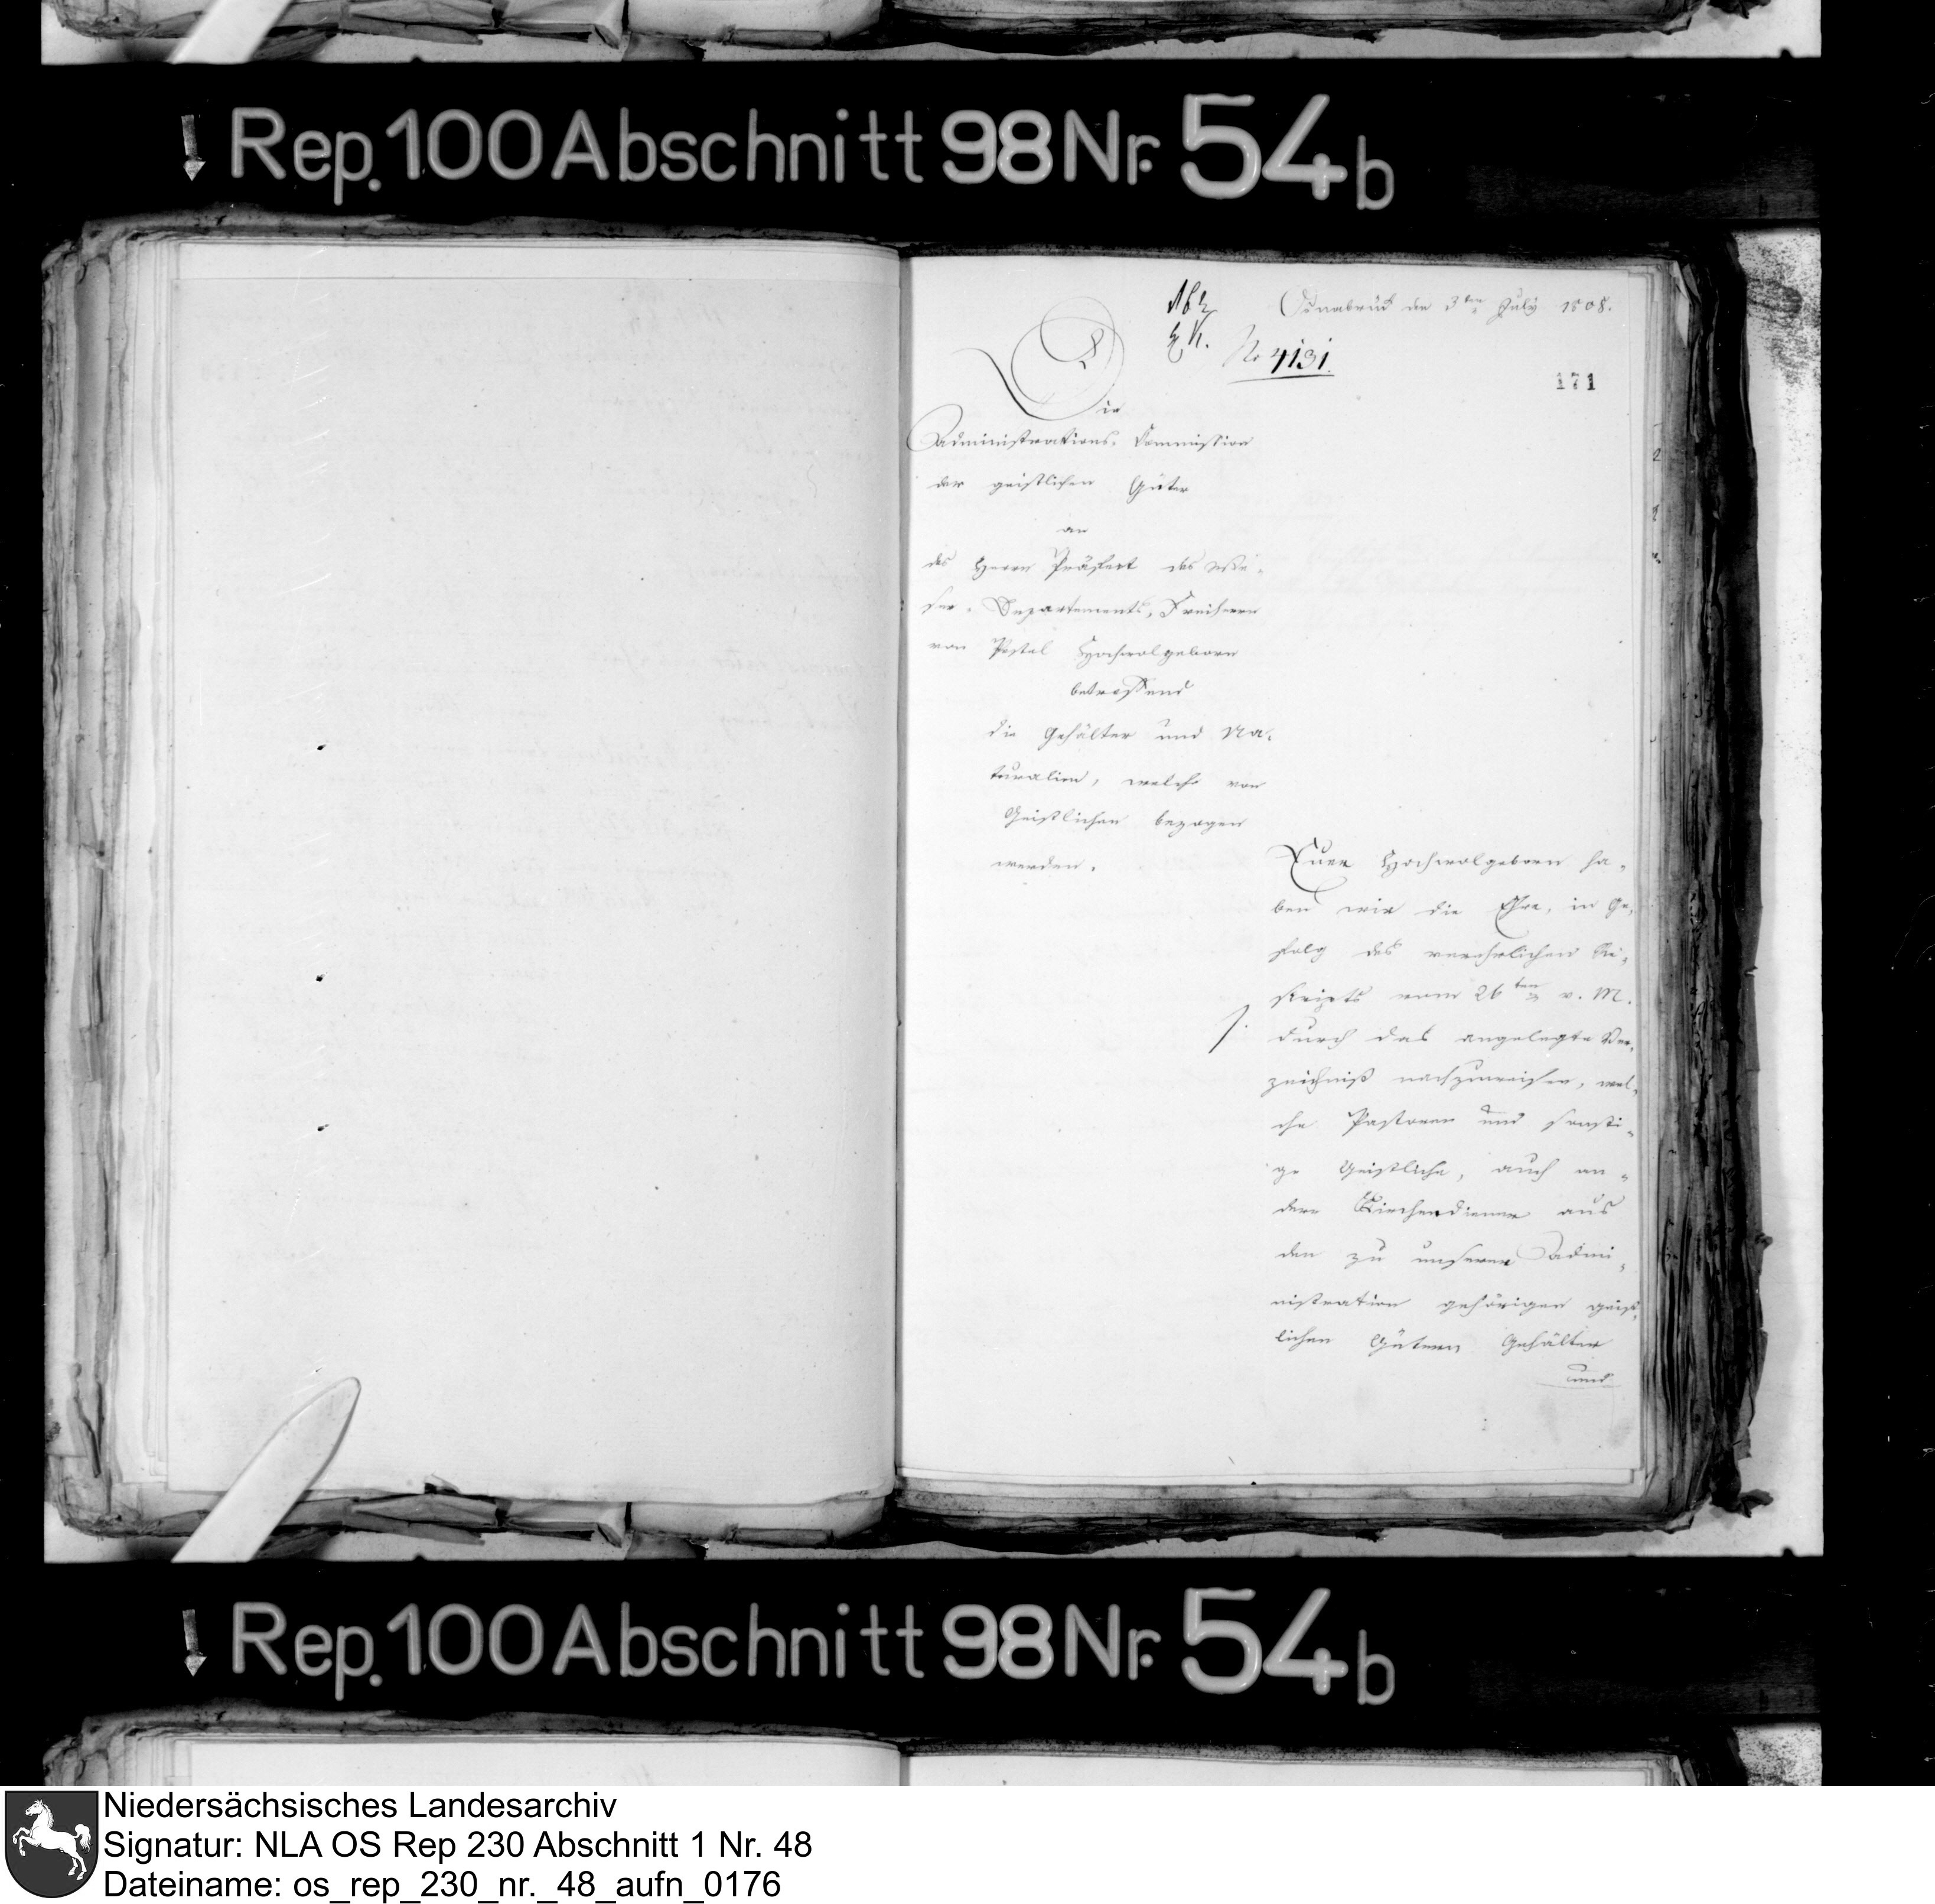 Rep. 100 Abschnitt 98 Nr. 54 b
Osnabrück den 3ten July 1808.
No 4131.
171
Die
Administrations-Commission
der geistlichen Güter
an
des Herrn Präfect des Weser-
Departements, Freiherrn
von Pestel Hochwolgeborn
betreffend
die Gehälter und Na-
turalien, welche von
Geistlichen bezogen
werden.
Euer Hochwolgeborn ha-
ben wir die Ehre, in Ge-
folg des verehrlichen Re-
skripts vom 26ten v. M.
durch das angelegte Ver-
zeichniß nachzuweisen, wel-
che Pastoren und sonsti-
ge Geistliche, auch an-
dere Kirchendiener aus
den zu unserer Admi-
nistration gehörigen geist-
lichen Gütern Gehälter
und
Rep. 100 Abschnitt 98 Nr. 54 b
Niedersächsisches Landesarchiv
Signatur: NLA OS Rep 230 Abschnitt 1 Nr. 48
Dateiname: os_rep_230_nr._48_aufn_0176